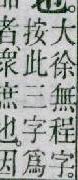 也。大徐無程字
按此三字爲
者衆庶也。因